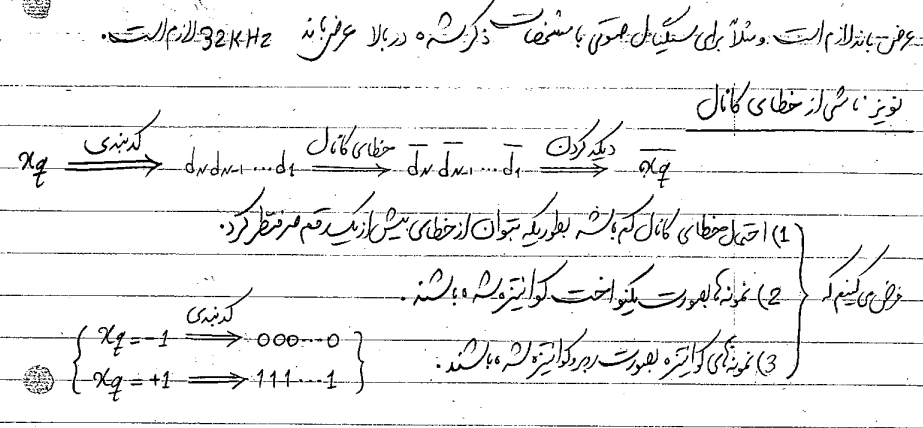 عرض باند لازم است و مثلاً برای سیگنال صوتی با مشخصات ذکر شده در بالا عرض باند 32KHz لازم است.
نویز ناشی از خطای کانال
xq ⟹ کدبندی dN dN-1 ... d1 ⟹ خطای کانال d̄N d̄N-1 ... d̄1 ⟹ دیکد کردن x̄q
فرض می کنیم که
1) احتمال خطای کانال کم باشد بطوریکه بتوان از خطای بیش از یک رقم صرفنظر کرد.
2) نمونه ها بصورت یکنواخت کوانتیزه شده باشند.
3) نمونه های کوانتیزه بصورت کوانتیزه شده باشند.
کدبندی
xq = -1 ⟹ 000...0
xq = +1 ⟹ 111...1